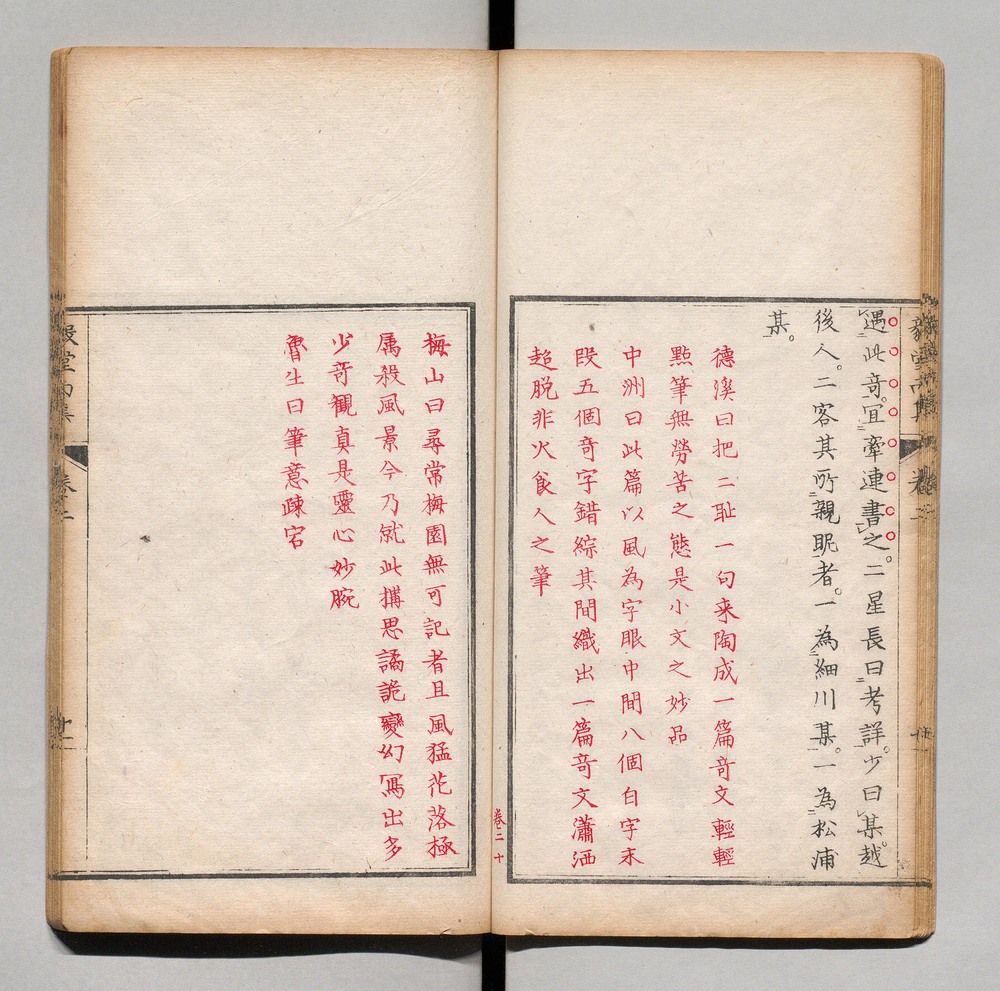 遇此奇。宜牽連書之。二星長曰考詳。少曰某越
後人。二客其所親昵者。一為細川某。一為松浦
某。
德溪曰把二耻一句来陶成一篇竒文輕輕
㸃筆無勞苦之態是小文之妙品
中洲曰此篇以風為字眼中間八個白字末
段五個竒字錯綜其間織出一篇竒文瀟洒
超脱非火食人之筆
卷二 十
梅山曰尋常梅園無可記者且風猛花落極
属殺風景今乃就此搆思譎詭變幻冩出多
少竒觀真是靈心妙腕
魯生曰筆意踈宕
卷二